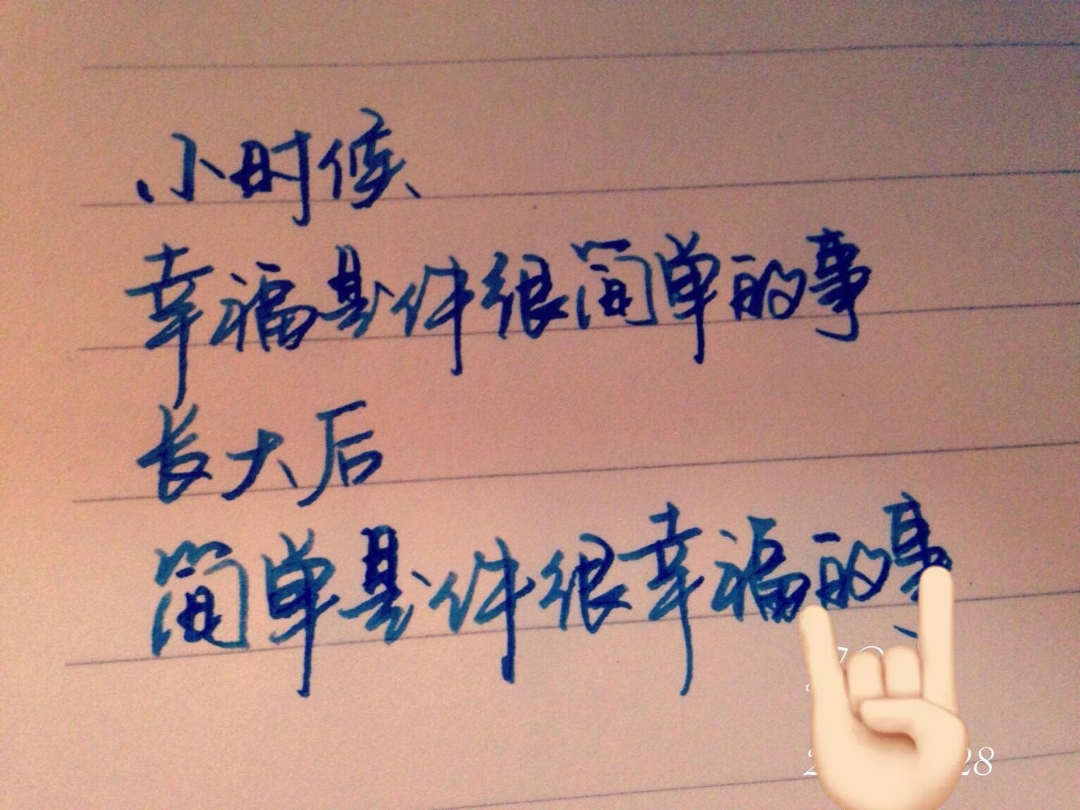 小时候、
幸福是件很简单的事
长大后
简单是件很幸福的事
28